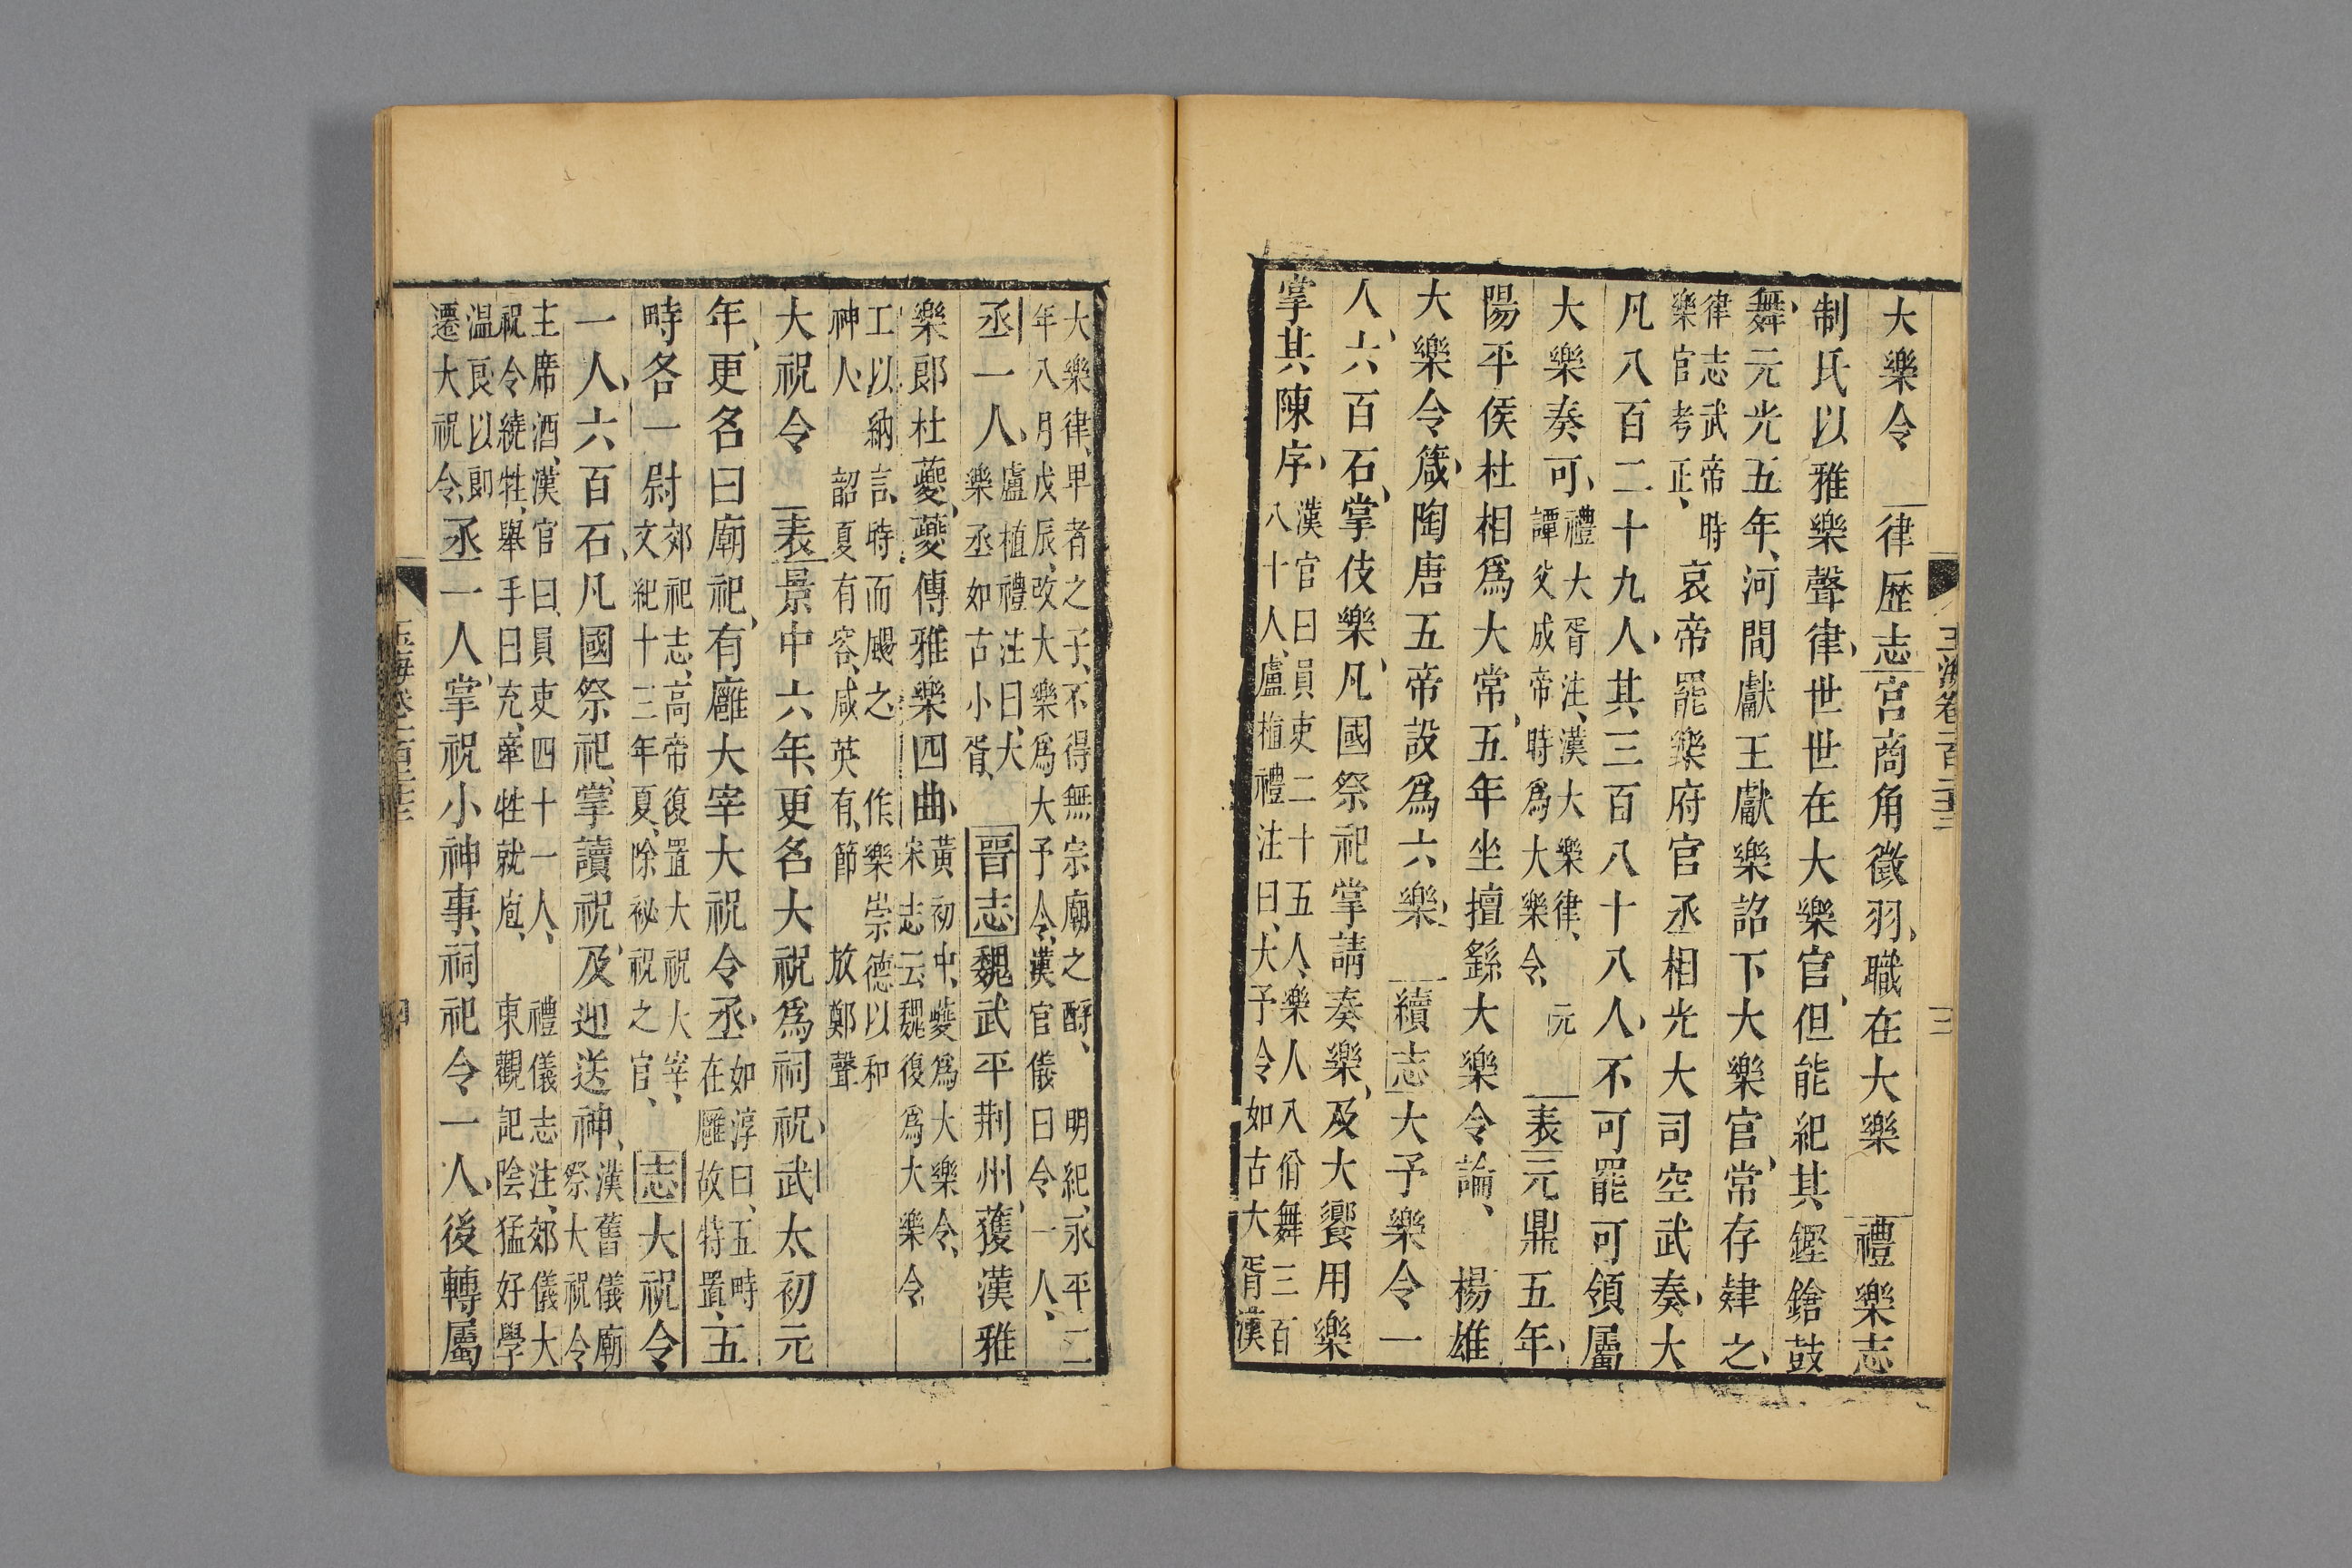 大樂令　律歷志宮商角徵羽、職在大樂　禮樂志
制氏以雅樂聲律、世世在大樂官、但能紀其鏗鎗鼓
舞、元光五年、河間獻王獻樂詔下大樂官、常存肄之、
律志武帝時
樂官考正、
哀帝罷樂府官丞相光大司空武奏、大
凡八百二十九人、其三百八十八人、不可罷可領屬
大樂奏可、
禮大胥注、漢大樂律、元
譚父成帝時爲大樂令、
表元鼎五年、
陽平侯杜相爲大常、五年坐擅繇大樂令論、　楊雄
大樂令箴、陶唐五帝設爲六樂、　續志大予樂令一
人、六百石、掌伎樂、凡國祭祀掌請奏樂、及大饗用樂
掌其陳序、
漢官曰員吏二十五人、樂人八佾舞三百
八十人、盧植禮注曰、大予令如古大胥漢
大樂律、卑者之子、不得無宗廟之酎、　明紀、永平二
年八月戊辰、改大樂爲大予令、漢官儀曰令一人、
丞一人、
盧植禮注曰、大
樂丞如古小胥、
晉志魏武平荆州、獲漢雅
樂郎杜夔、夔傳雅樂四曲、
黃初中、夔爲大樂令、
宋志云魏復爲大樂令
工以納言、時而颺之　作樂崇德以和
神人、　韶夏有容、咸英有節　放鄭聲
大祝令　表景中六年、更名大祝爲祠祝、武太初元
年、更名曰廟祀、有廱大宰大祝令丞、
如淳曰、五畤
在廱故特置、
五
畤各一尉
郊祀志、高帝復置大祝大宰、
文紀十三年夏、除祕祝之官、
志大祝令
一人、六百石、凡國祭祀、掌讀祝、及迎送神、
漢舊儀廟
祭大祝令
主席酒、漢官曰、員吏四十一人、　禮儀志注、郊儀大
祝令繞牲、舉手曰充、牽牲就庖、　東觀記陰猛好學
温良以郎
遷大祝令、
丞一人、掌祝小神事、祠祀令一人、後轉屬